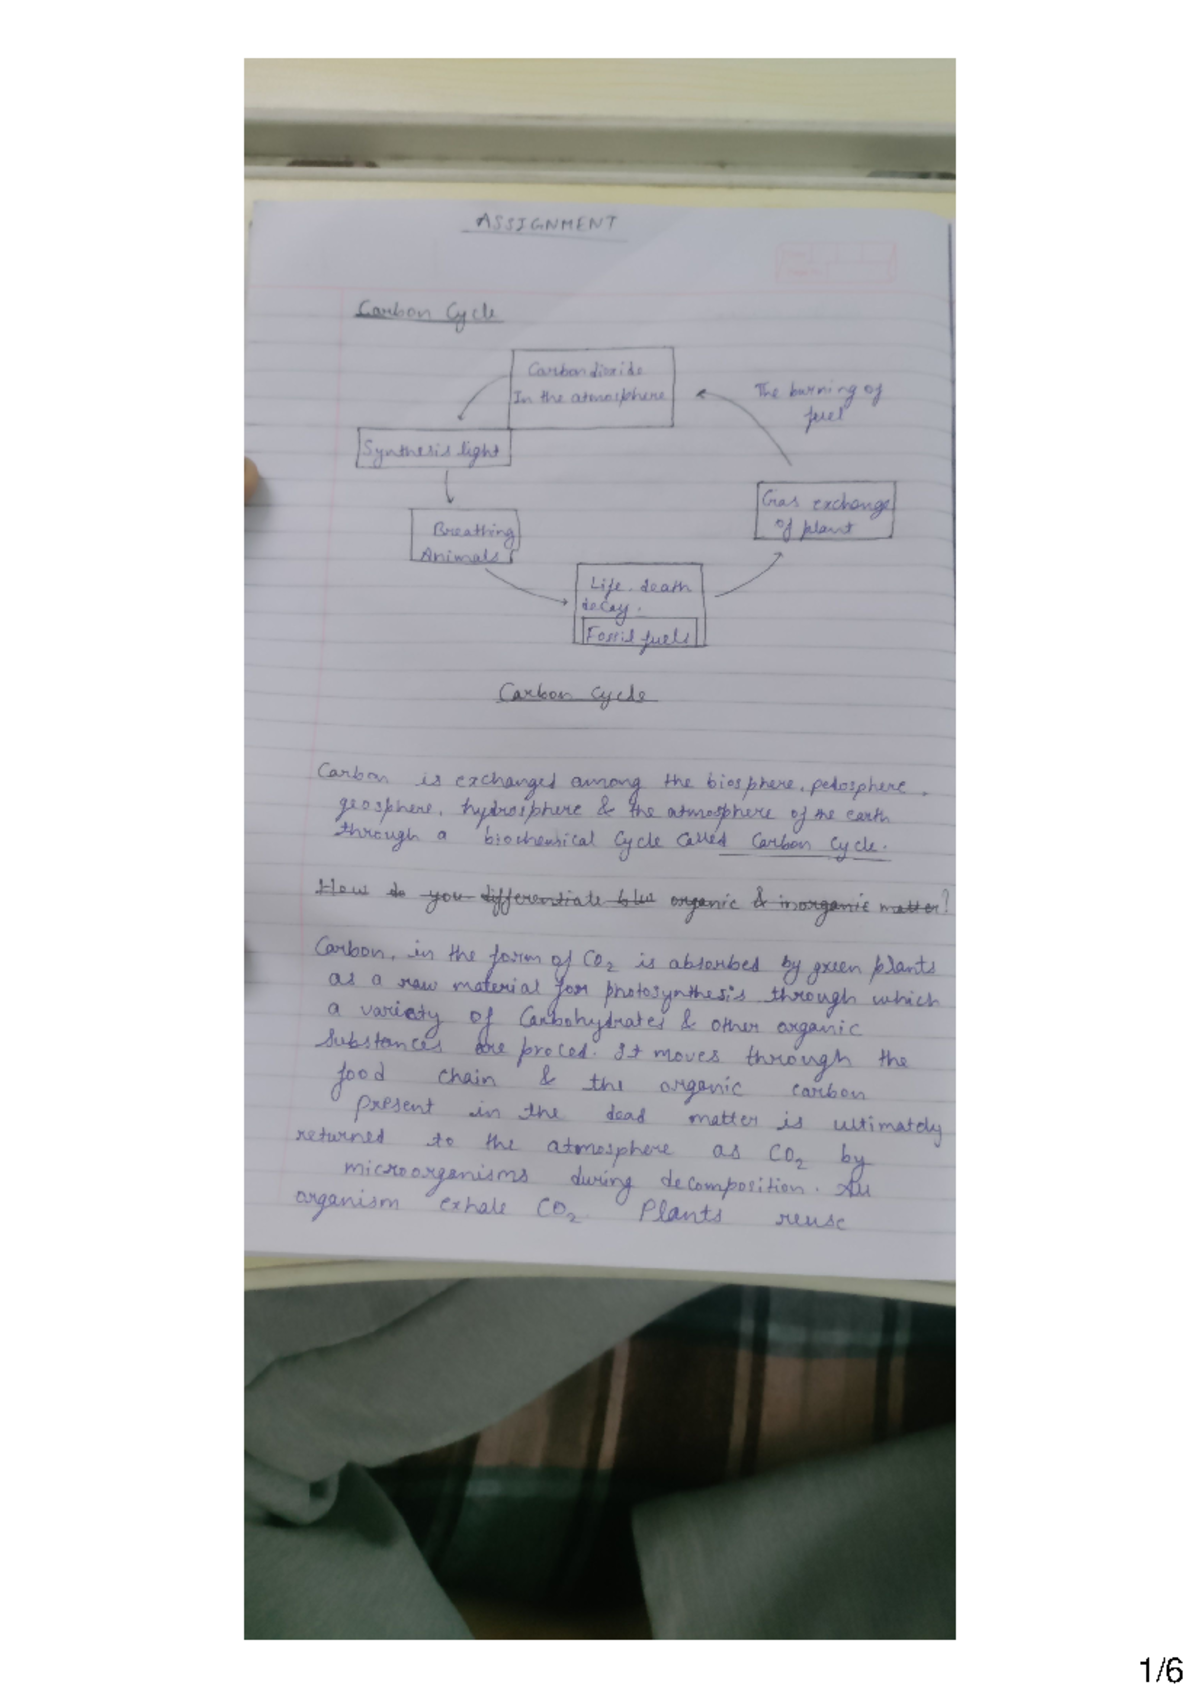 ASSIGNMENT
Carbon Cycle
Carbondioxide
In the atmosphere
The burning of
fuel
Synthesis light
Gas exchange
of plant
Breathing
Animals
Life. death
decay.
Fossil fuels
Carbon Cycle
Carbon is exchanged among the biosphere, pedosphere,
geosphere, hydrosphere & the atmosphere of the earth
through a biochemical Cycle Called Carbon Cycle.
How do you differentiate b/w organic & inorganic matter?
Carbon, in the form of CO2 is absorbed by green plants
as a raw material for photosynthesis through which
a variety of Carbohydrates & other organic
Substances are proced. It moves through the
food chain & the organic carbon
present in the dead matter is ultimately
returned to the atmosphere as CO2 by
microorganisms during decomposition. All
organism exhale CO2 Plants reuse
1/6